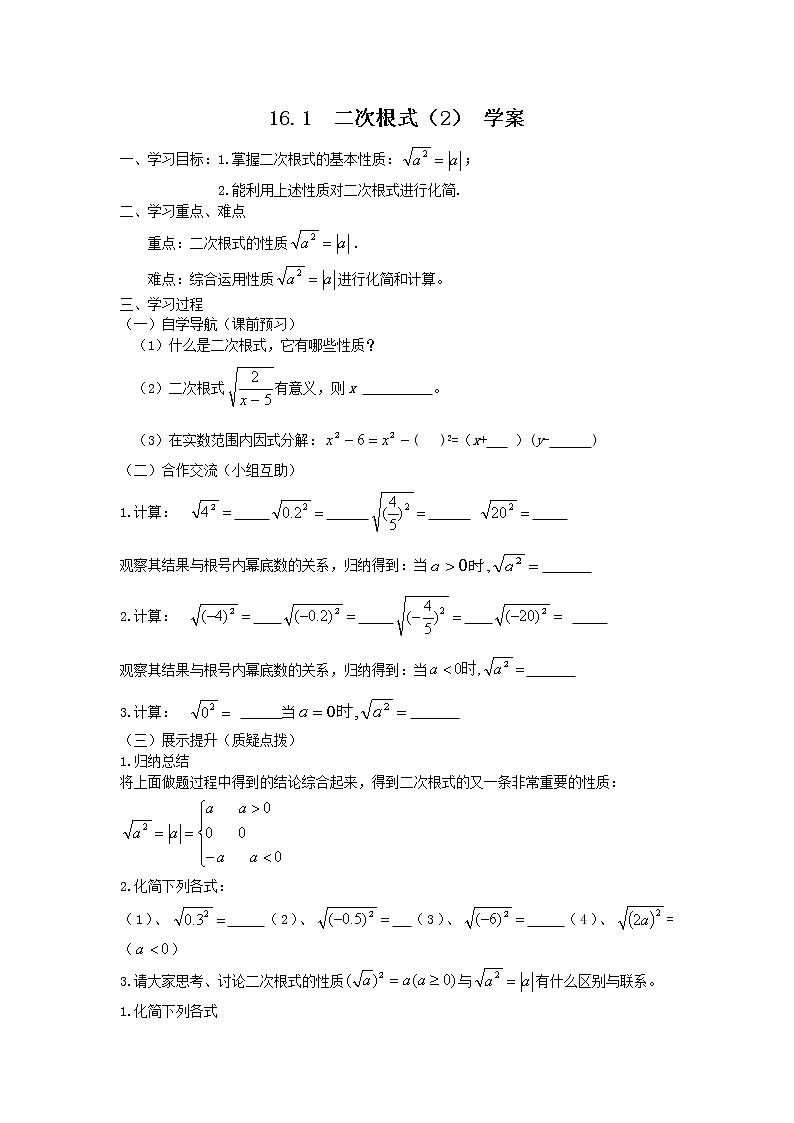 16.1 二次根式（2） 学案
一、学习目标：1.掌握二次根式的基本性质：√(a²) = |a|；
2.能利用上述性质对二次根式进行化简.
二、学习重点、难点
重点：二次根式的性质√(a²) = |a|.
难点：综合运用性质√(a²) = |a|进行化简和计算。
三、学习过程
（一）自学导航（课前预习）
（1）什么是二次根式，它有哪些性质？
（2）二次根式√(2/(x−5))有意义，则 x __________。
（3）在实数范围内因式分解：x²−6=x²−( )²=（x+___ ）(y-______)
（二）合作交流（小组互助）
1.计算： √(4²) =_____√(0.2²) =______√((4/5)²) =______ √(20²) =_____
观察其结果与根号内幂底数的关系，归纳得到：当a > 0时，√(a²) = _______
2.计算： √((−4)²) =____√((−0.2)²) =_____√((−4/5)²) =____√((−20)²) = _____
观察其结果与根号内幂底数的关系，归纳得到：当a < 0时,√(a²) =_______
3.计算： √(0²) = ______当a = 0时,√(a²) = _______
（三）展示提升（质疑点拨）
1.归纳总结
将上面做题过程中得到的结论综合起来，得到二次根式的又一条非常重要的性质：
√(a²) = |a| = { a a > 0
0 0
−a a < 0
2.化简下列各式：
（1）、 √(0.3²) =_____（2）、 √((−0.5)²) =___（3）、 √((−6)²) =_____（4）、 √((2a)²) =
（a < 0）
3.请大家思考、讨论二次根式的性质(√a)² = a(a ≥ 0)与√(a²) = |a|有什么区别与联系。
1.化简下列各式